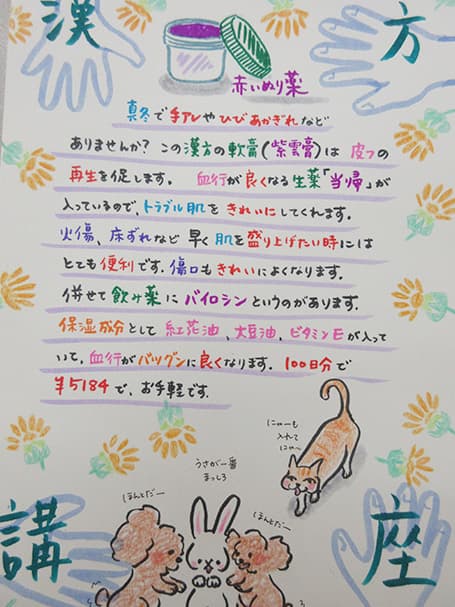 漢方
赤いぬり薬
真冬で手アレやひびあかぎれなど
ありませんか？この漢方の軟膏(紫雲膏)は 皮フの
再生を促します。 血行が良くなる生薬「当帰」が
入っているので、トラブル肌を きれいにしてくれます。
火傷、床ずれなど 早く肌を盛り上げたい時には
とても便利です。傷口もきれいによくなります。
併せて飲み薬に バイロシンというのがあります。
保湿成分として 紅花油、大豆油、ビタミンEが入って
いて、血行がバツグンに良くなります。100日分で
¥5184で、お手軽です.
にゃーも
入れて
にゃ〜
うさが一番
まっしろ
ほんとだー
ほんとだー
講座